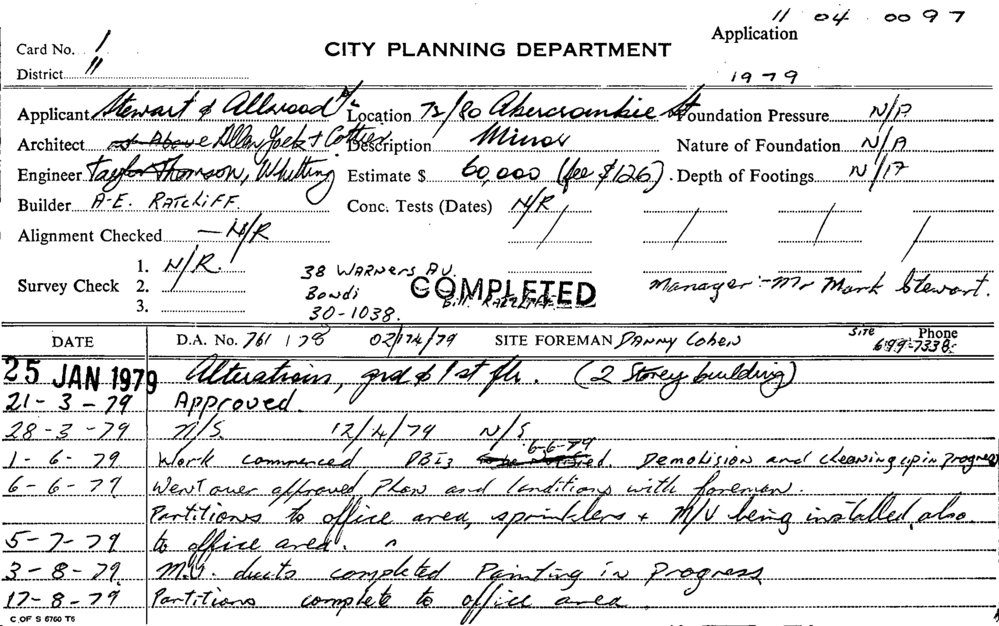 11 04 0097
Card No. 1 CITY PLANNING DEPARTMENT Application
District 11 1979
Applicant Stewart & Allwood P/L Location 72/80 Abercrombie St Foundation Pressure N/A
Architect as Above Allen Jack + Cottier Description Minor Nature of Foundation N/A
Engineer Taylor Thomson, Whitting Estimate $ 60,000 (fee $126). Depth of Footings N/A
Builder A.E. RATCLIFF. Conc. Tests (Dates) N/R / / /
Alignment Checked — N/R / / / /
Survey Check 1. N/R. 38 WARNERS AV.
2. Bondi COMPLETED Bill Ratcliff Manager:- Mr Mark Stewart.
3. 30-1038.
DATE D.A. No. 761 / 78 02/174/79 SITE FOREMAN DANNY Cohen Site Phone 699-7338.
25 JAN 1979 Alterations, grd & 1st flr. (2 Storey building)
21-3-79 Approved.
28-3-79 N/S. 12/4/79 N/S 6-6-79
1-6-79 Work commenced DBI3 Demolision and cleaning up in progress
6-6-79 Went over approved Plan and Conditions with foreman.
Partitions to office area, sprinklers + M/V being installed also
5-7-79 to office area.
3-8-79 M.V. ducts completed Painting in Progress
17-8-79 Partitions complete to office area.
C OF S 6760 T6